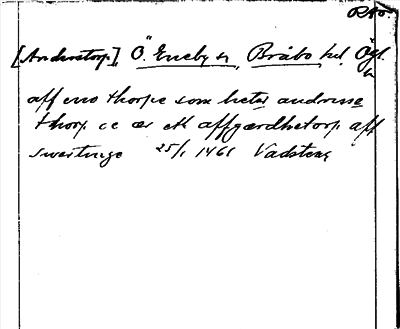 RAp.
[Anderstorp] Ö. Eneby sn, Bråbo hd, Ögl.
aff eno thorpe som heter andrissa
thorp oc ær ett affgærdhetorp aff
swertinge 25/1 1461 Vadstena